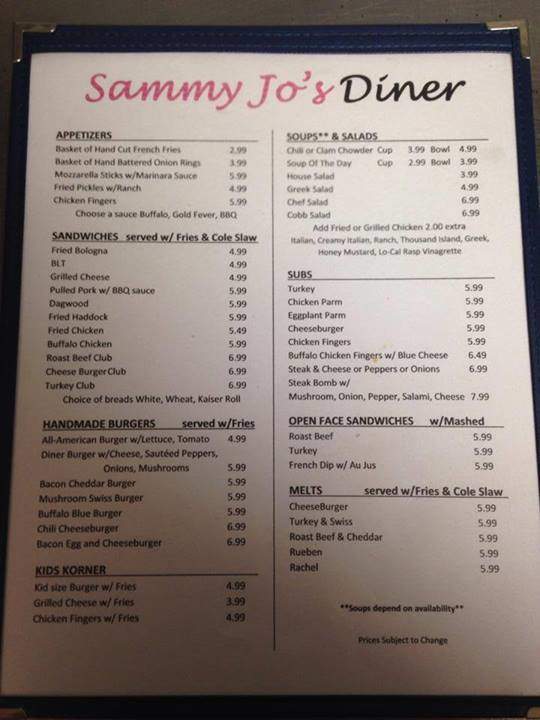 Sammy Jo's Diner
APPETIZERS
Basket of Hand Cut French Fries 2.99
Basket of Hand Battered Onion Rings 3.99
Mozzarella Sticks w/Marinara Sauce 5.99
Fried Pickles w/Ranch 4.99
Chicken Fingers 5.99
Choose a sauce Buffalo, Gold Fever, BBQ
SANDWICHES served w/ Fries & Cole Slaw
Fried Bologna 4.99
BLT 4.99
Grilled Cheese 4.99
Pulled Pork w/ BBQ sauce 5.99
Dagwood 5.99
Fried Haddock 5.99
Fried Chicken 5.49
Buffalo Chicken 5.99
Roast Beef Club 6.99
Cheese BurgerClub 6.99
Turkey Club 6.99
Choice of breads White, Wheat, Kaiser Roll
HANDMADE BURGERS served w/Fries
All-American Burger w/Lettuce, Tomato 4.99
Diner Burger w/Cheese, Sautéed Peppers,
Onions, Mushrooms 5.99
Bacon Cheddar Burger 5.99
Mushroom Swiss Burger 5.99
Buffalo Blue Burger 5.99
Chili Cheeseburger 6.99
Bacon Egg and Cheeseburger 6.99
KIDS KORNER
Kid size Burger w/ Fries 4.99
Grilled Cheese w/ Fries 3.99
Chicken Fingers w/ Fries 4.99
SOUPS** & SALADS
Chili or Clam Chowder Cup 3.99 Bowl 4.99
Soup Of The Day Cup 2.99 Bowl 3.99
House Salad 3.99
Greek Salad 4.99
Chef Salad 6.99
Cobb Salad 6.99
Add Fried or Grilled Chicken 2.00 extra
Italian, Creamy Italian, Ranch, Thousand Island, Greek,
Honey Mustard, Lo-Cal Rasp Vinagrette
SUBS
Turkey 5.99
Chicken Parm 5.99
Eggplant Parm 5.99
Cheeseburger 5.99
Chicken Fingers 5.99
Buffalo Chicken Fingers w/ Blue Cheese 6.49
Steak & Cheese or Peppers or Onions 6.99
Steak Bomb w/
Mushroom, Onion, Pepper, Salami, Cheese 7.99
OPEN FACE SANDWICHES w/Mashed
Roast Beef 5.99
Turkey 5.99
French Dip w/ Au Jus 5.99
MELTS served w/Fries & Cole Slaw
CheeseBurger 5.99
Turkey & Swiss 5.99
Roast Beef & Cheddar 5.99
Rueben 5.99
Rachel 5.99
**Soups depend on availability**
Prices Subject to Change